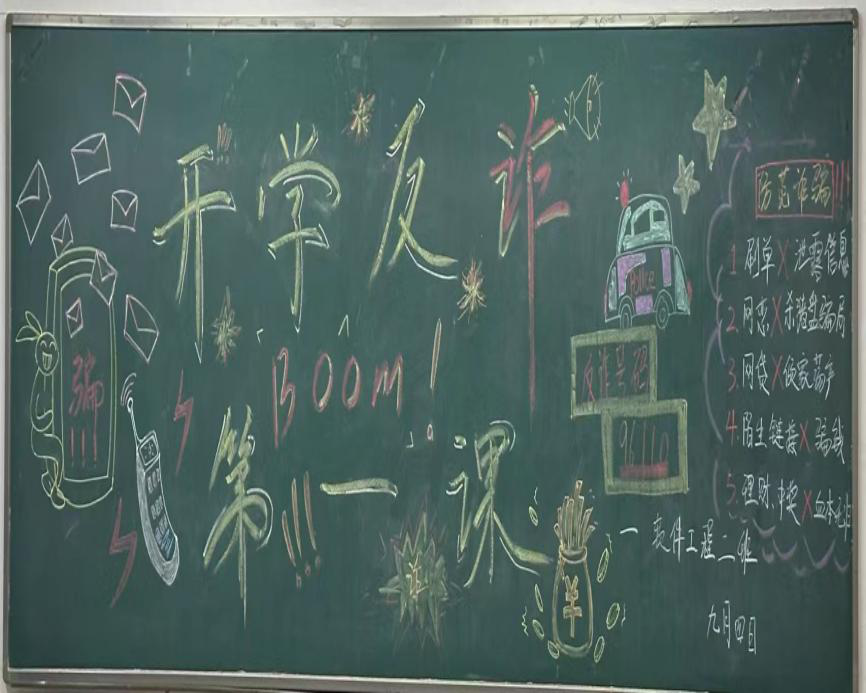 开学反诈
BOOM!
第一课
!!!
骗
!!!
诈
¥
Police
反诈号码
96110
防范诈骗!!!
1. 刷单X泄露信息
2. 网恋X杀猪盘骗局
3. 网贷X倾家荡产
4. 陌生链接X骗钱
5. 理财、中奖X血本无归
一 软件工程二班
九月四日